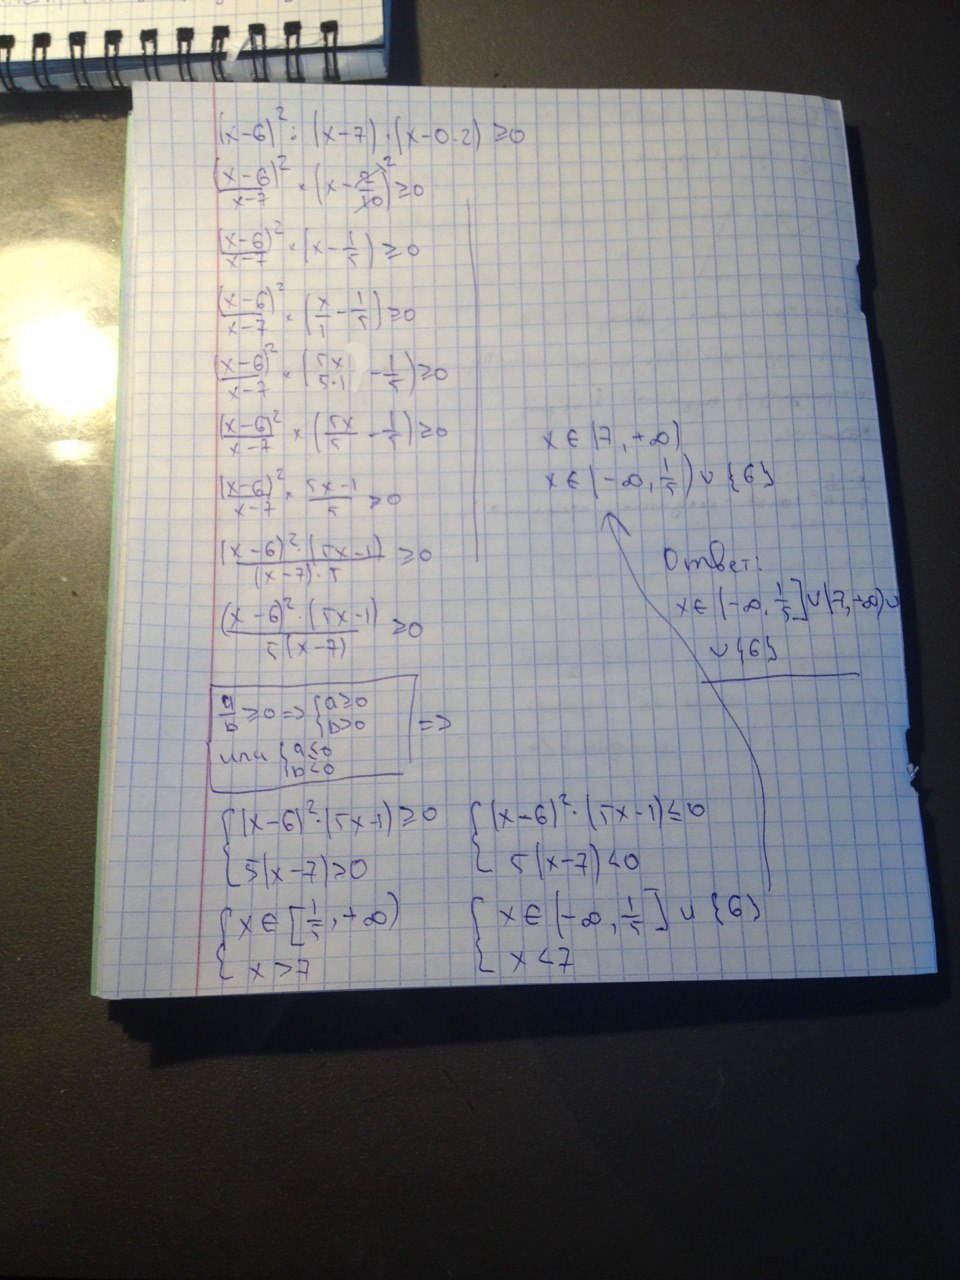 (x-6)² : (x-7) · (x-0.2) ≥0
(x-6)²/x-7 × (x - 2/10) ≥0
(x-6)²/x-7 × (x - 1/5) ≥0
(x-6)²/x-7 × (x/1 - 1/5) ≥0
(x-6)²/x-7 × (5x/5·1 - 1/5) ≥0
(x-6)²/x-7 × (5x/5 - 1/5) ≥0
(x-6)²/x-7 · 5x-1/5 ≥0
(x-6)²·(5x-1)/(x-7)·5 ≥0
(x-6)²·(5x-1)/5(x-7) ≥0
a/b ≥0 => {a≥0
{b>0
или {a≤0
{b<0
=>
{(x-6)²·(5x-1) ≥0
{5(x-7) >0
{x ∈ [1/5, +∞)
{x >7
{(x-6)²·(5x-1) ≤0
{5(x-7) <0
{x ∈ (-∞, 1/5] ∪ {6}
{x <7
x ∈ (7, +∞)
x ∈ (-∞, 1/5) ∪ {6}
Ответ:
x ∈ (-∞, 1/5] ∪ (7, +∞) ∪
∪ {6}